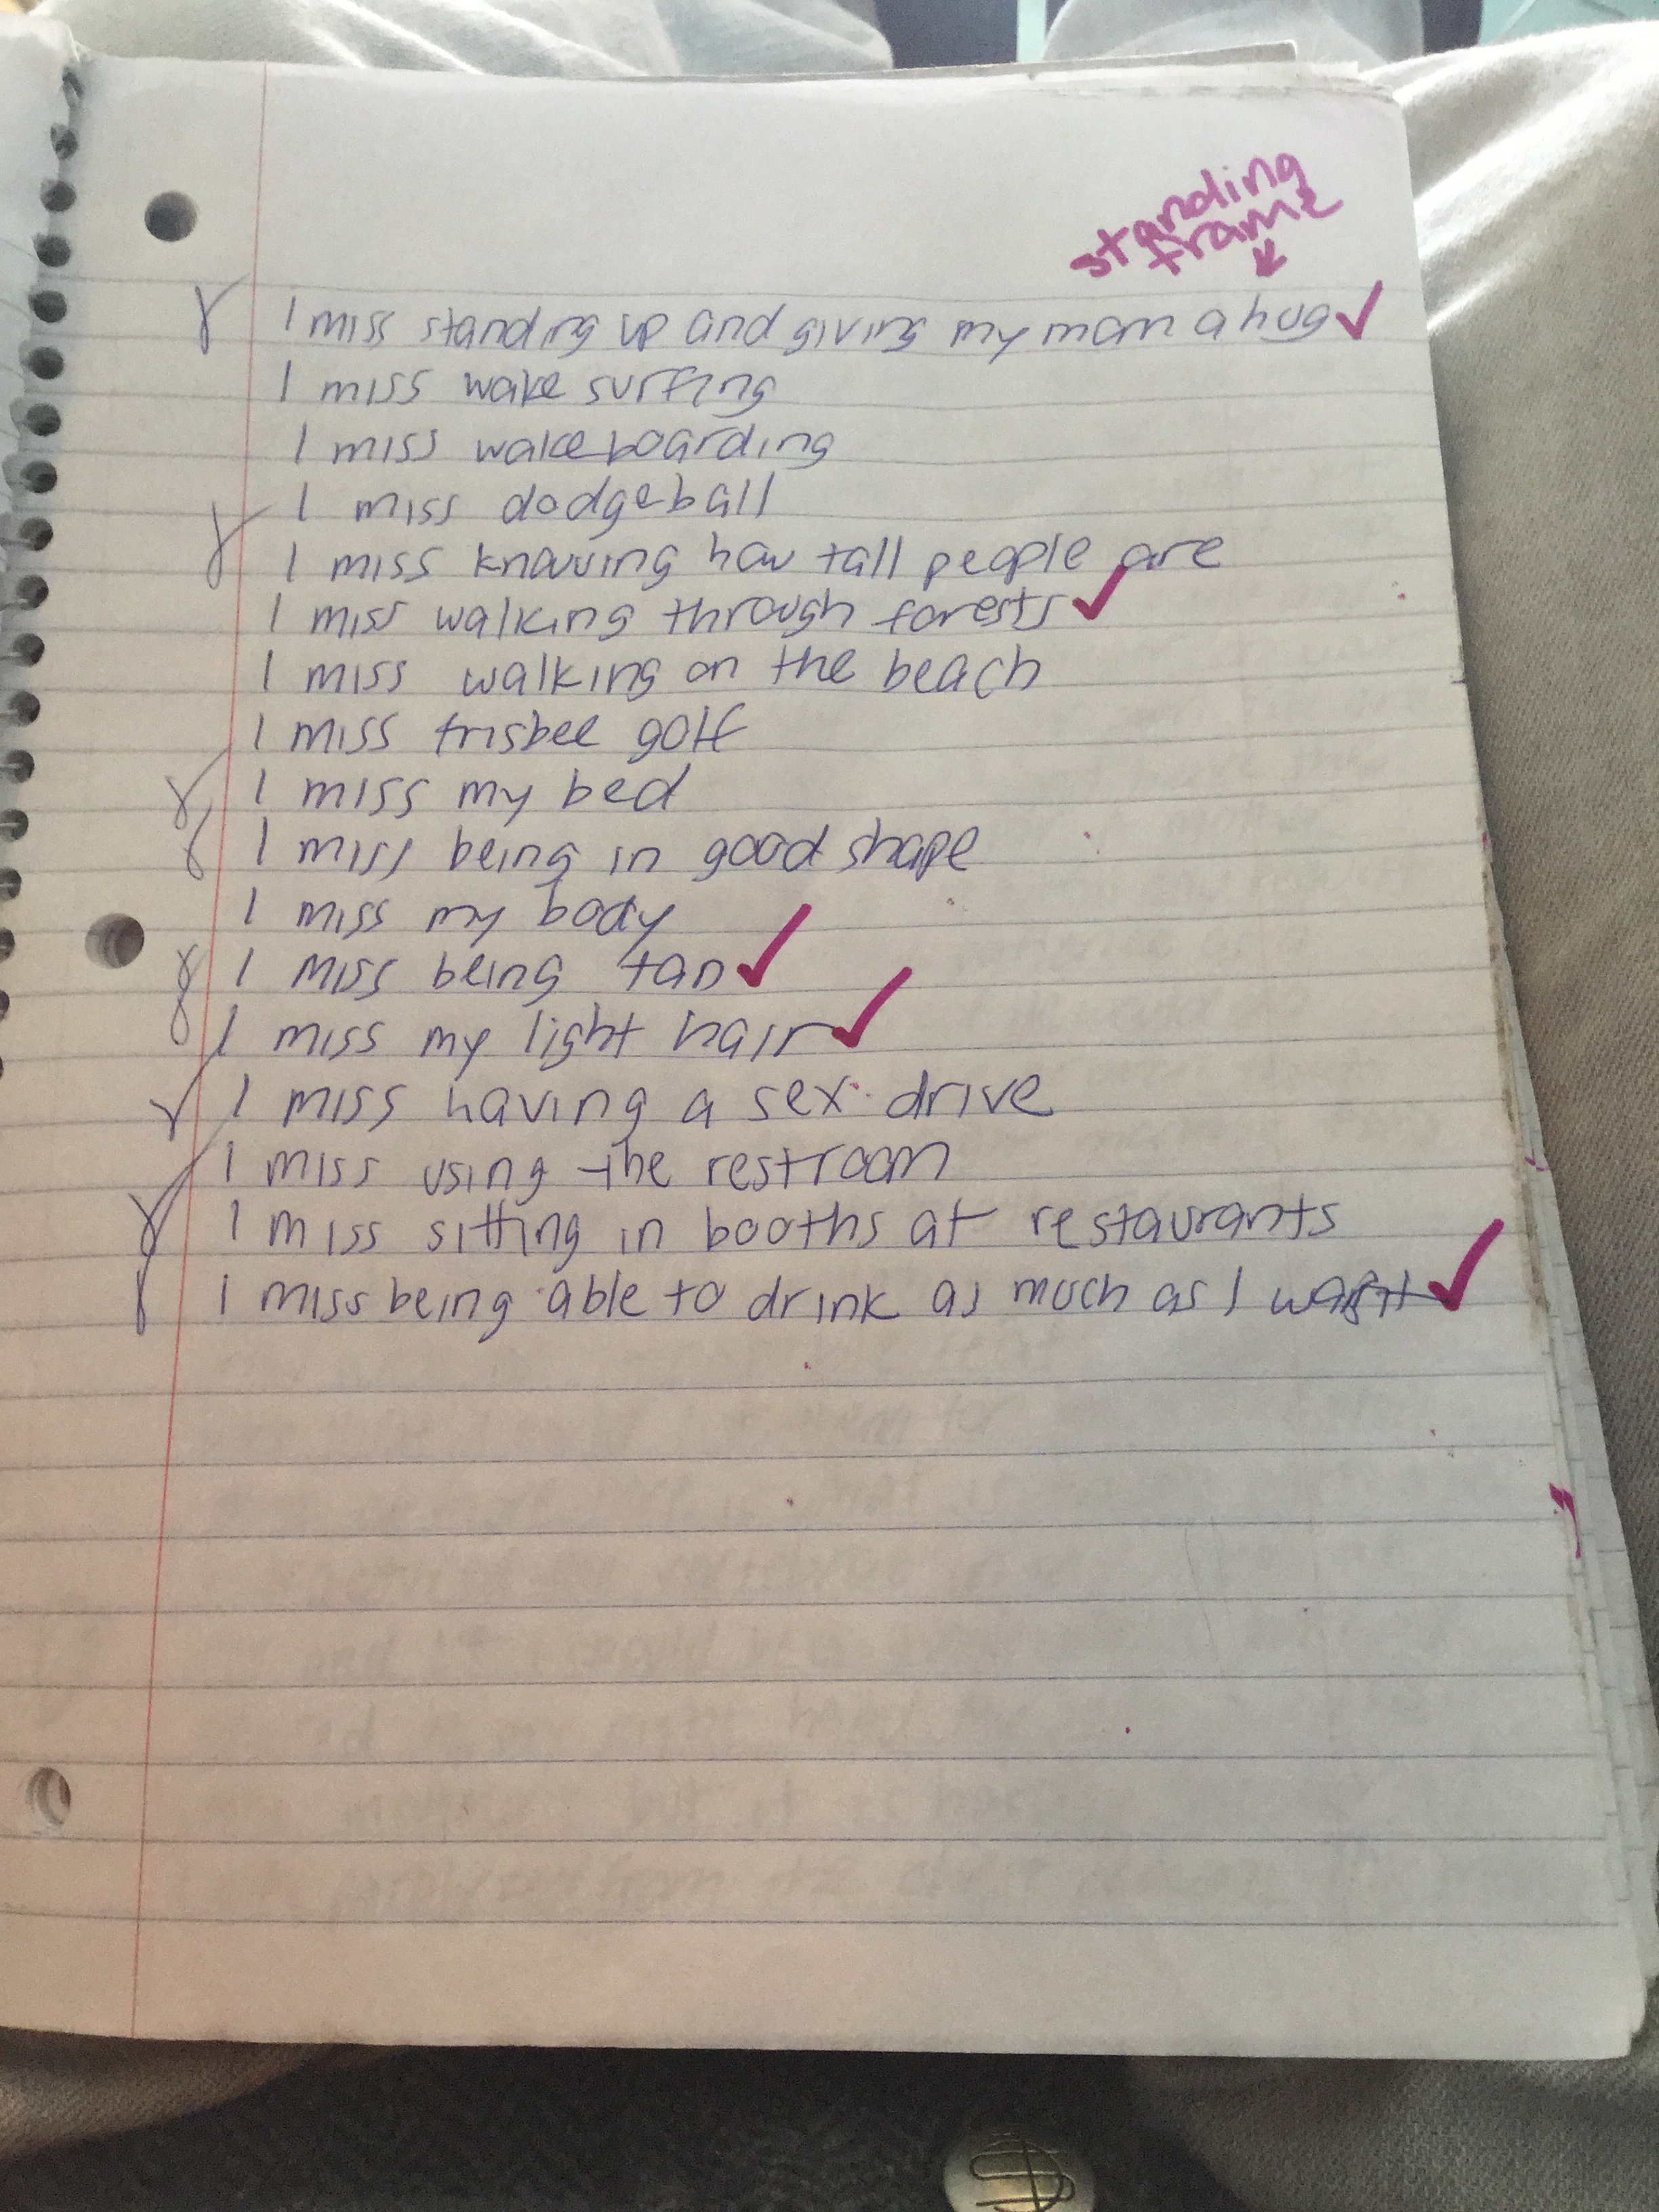 standing
frame
I miss standing up and giving my mom a hug
I miss wake surfing
I miss wakeboarding
I miss dodgeball
I miss knowing how tall people are
I miss walking through forests
I miss walking on the beach
I miss frisbee golf
I miss my bed
I miss being in good shape
I miss my body
I miss being tan
I miss my light hair
I miss having a sex drive
I miss using the restroom
I miss sitting in booths at restaurants
I miss being able to drink as much as I want